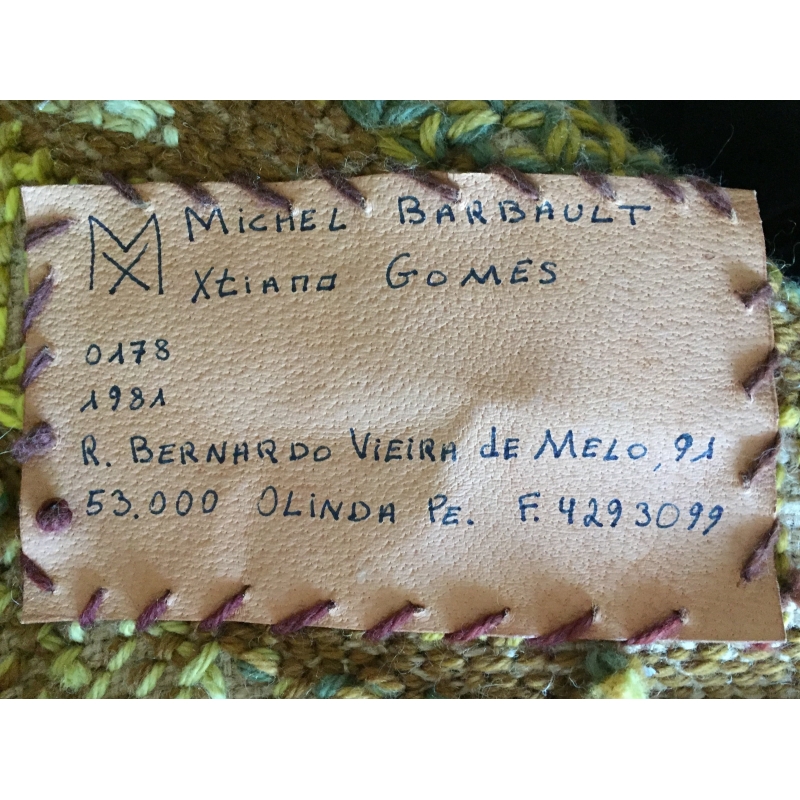 MICHEL BARBAULT
Xtiano GOMES
0178
1981
R. BERNARDO VIEIRA dE MELO, 91
53.000 OLINDA PE. F. 4293099